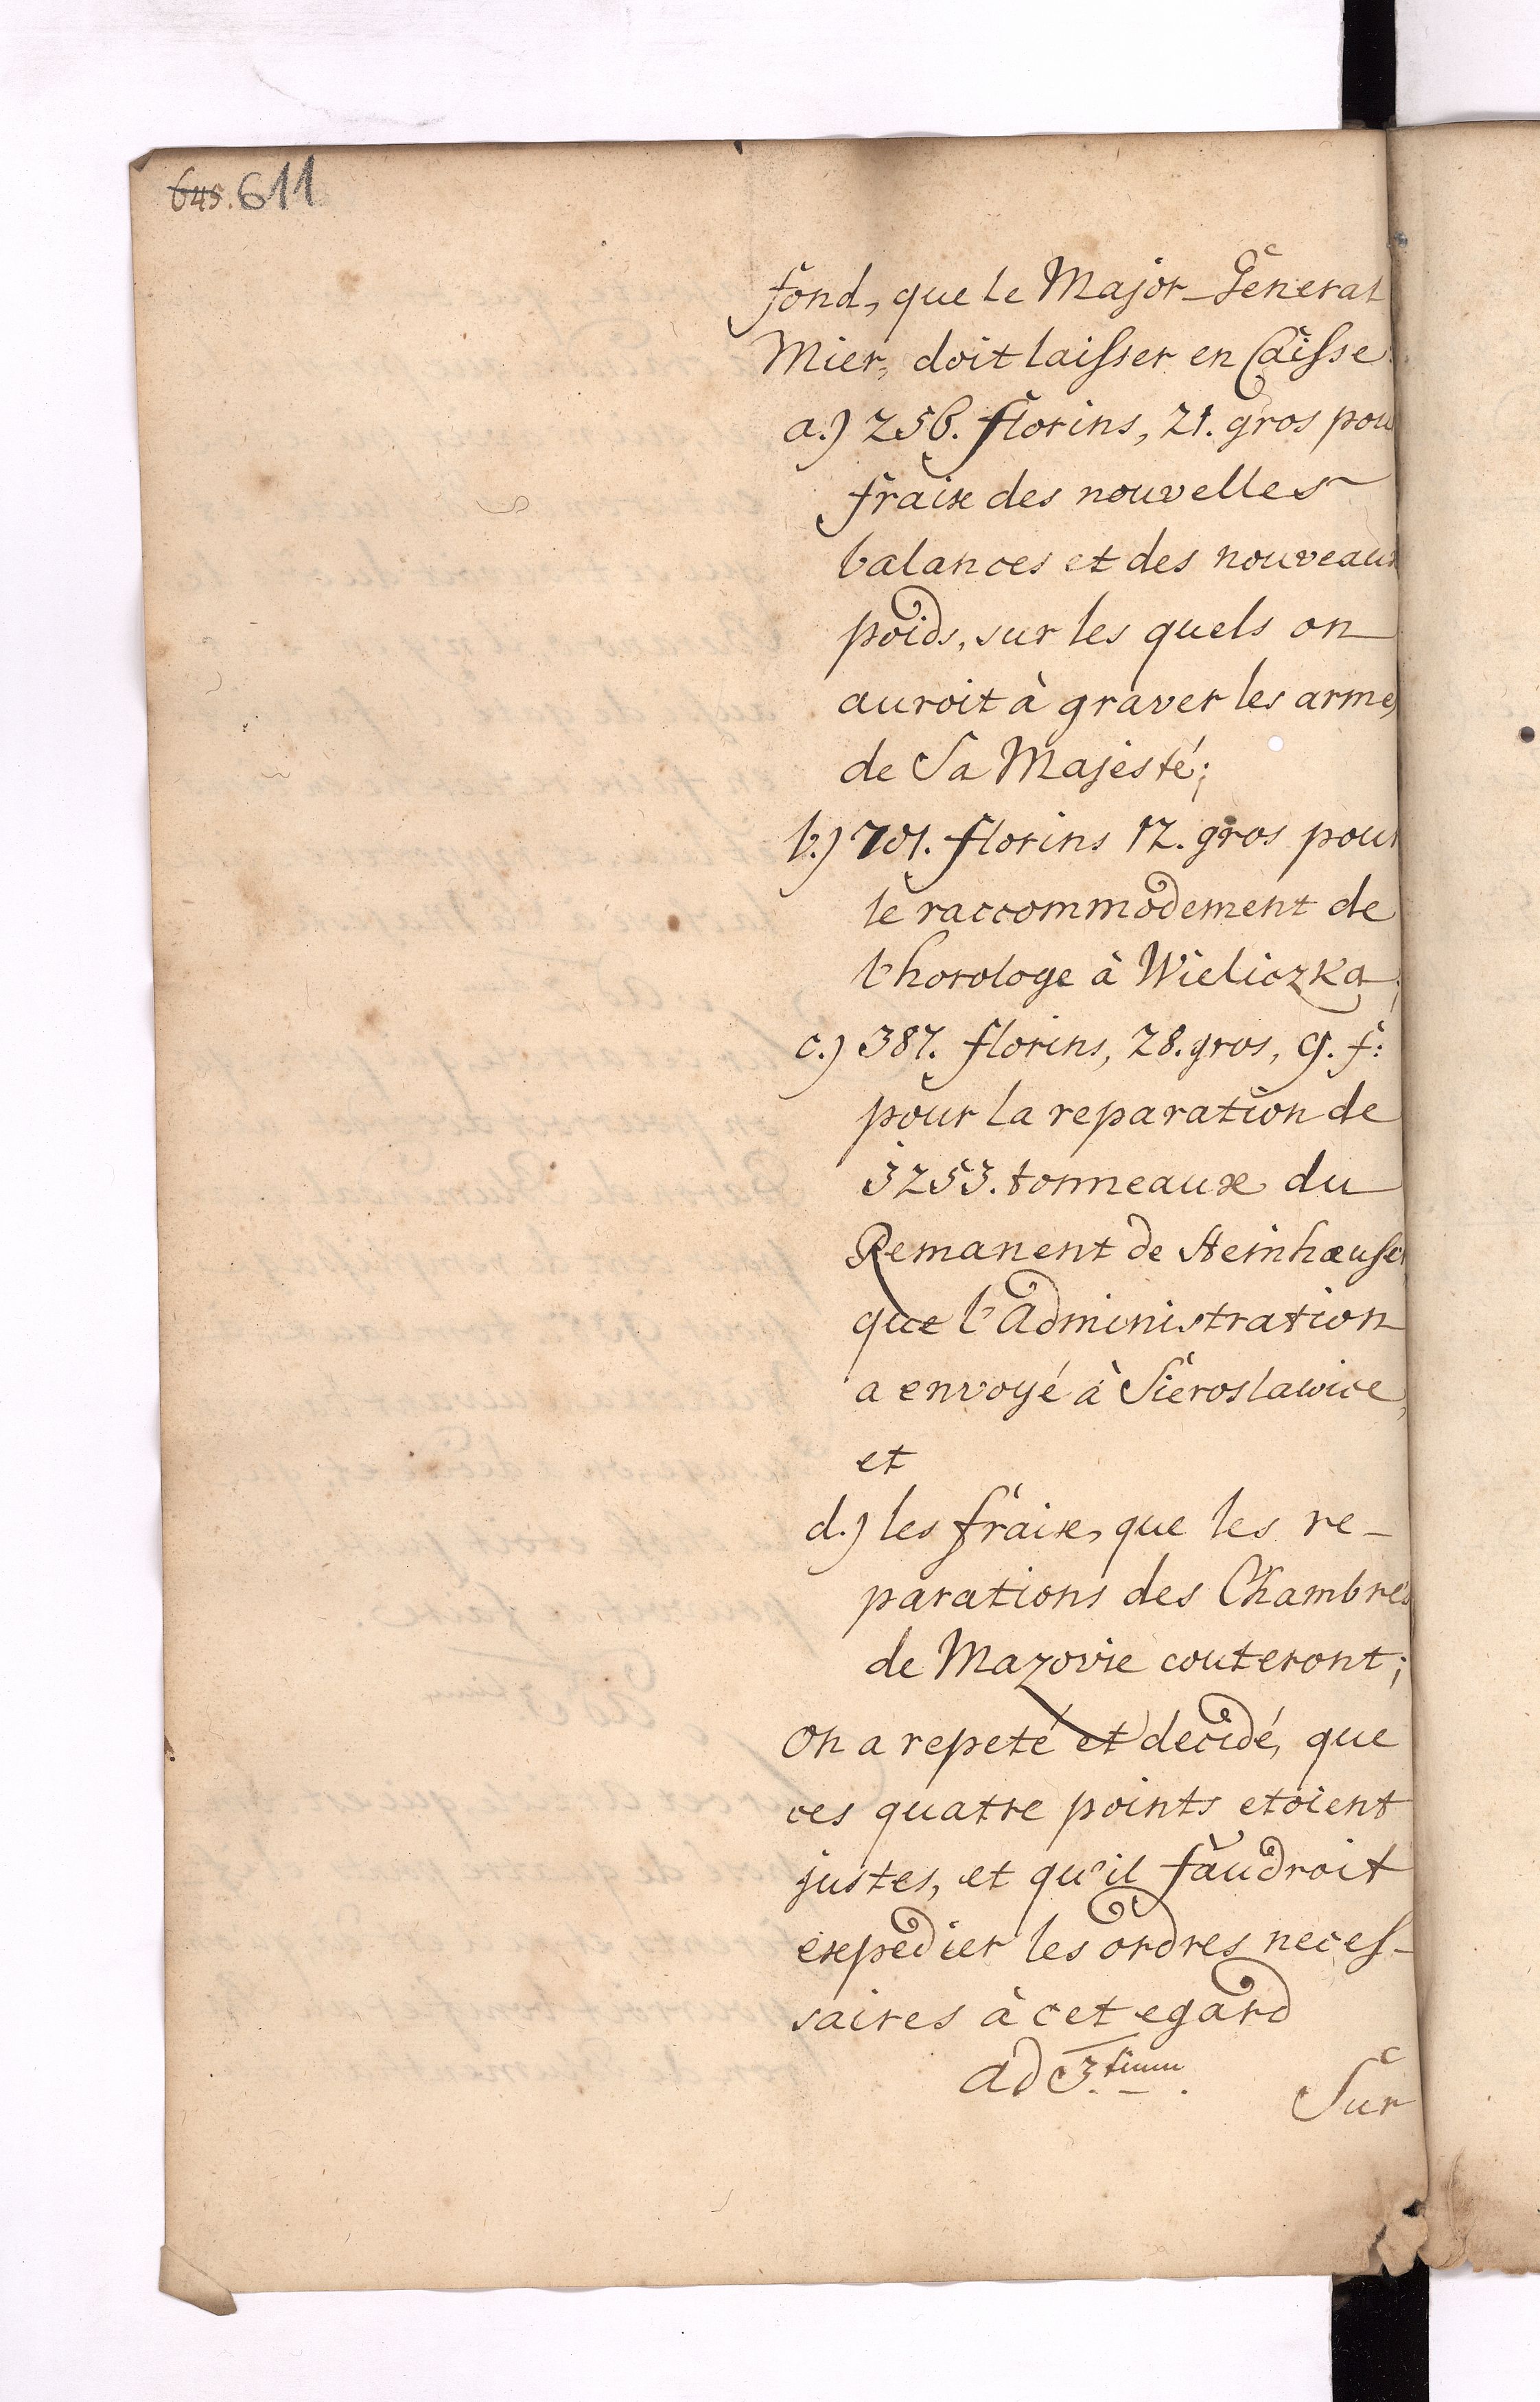 645. 611
fond, que le Major-General
Mier, doit laisser en Caisse
a.) 256. florins, 21. gros pou
fraix des nouvelles
balances et des nouveaux
poids, sur les quels on
auroit à graver les armes
de Sa Majesté;
b.) 701. florins 12. gros pour
le raccommodement de
l'horologe à Wieliczka;
c.) 387. florins, 28. gros, 9. f:
pour la reparation de
3253. tonneaux du
Remanent de Steinhæuser
que l'Administration
a envoyé à Sieroslawice,
et
d.) les fraix, que les re-
parations des Chambres
de Mazovie couteront;
On a repeté et decidé, que
ces quatre points etoient
justes, et qu'il faudroit
expedier les ordres neces-
saires à cet egard
ad 3tium.
Sur